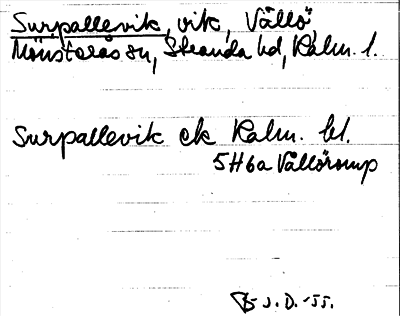 Surpallevik, vik, Vållö,
Mönsterås sn, Stranda hd, Kalm. l.
Surpallevik ek Kalm. bl.
5H6a Vållöromp
J. D. -55.